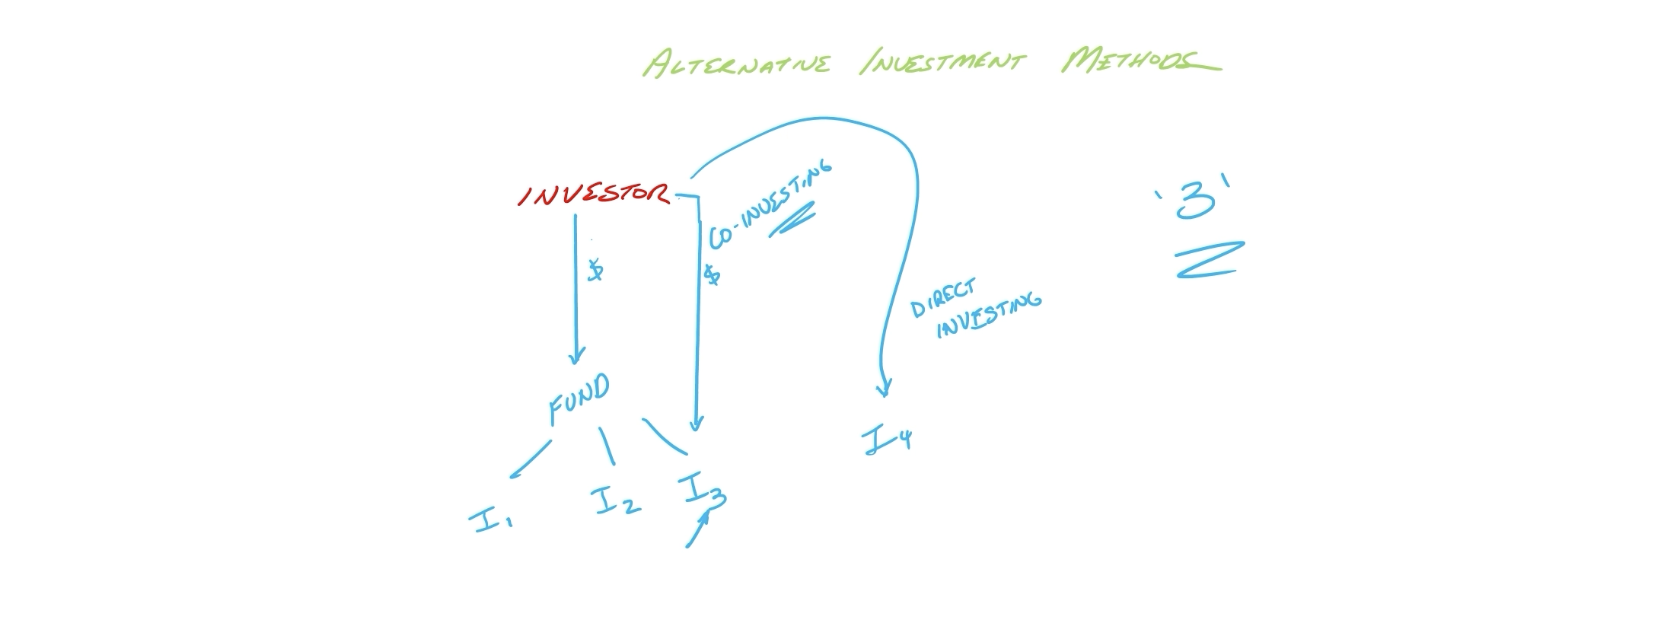 ALTERNATIVE INVESTMENT METHODS
INVESTOR
CO-INVESTING
'3'
$
$
DIRECT
INVESTING
FUND
I4
I1
I2
I3